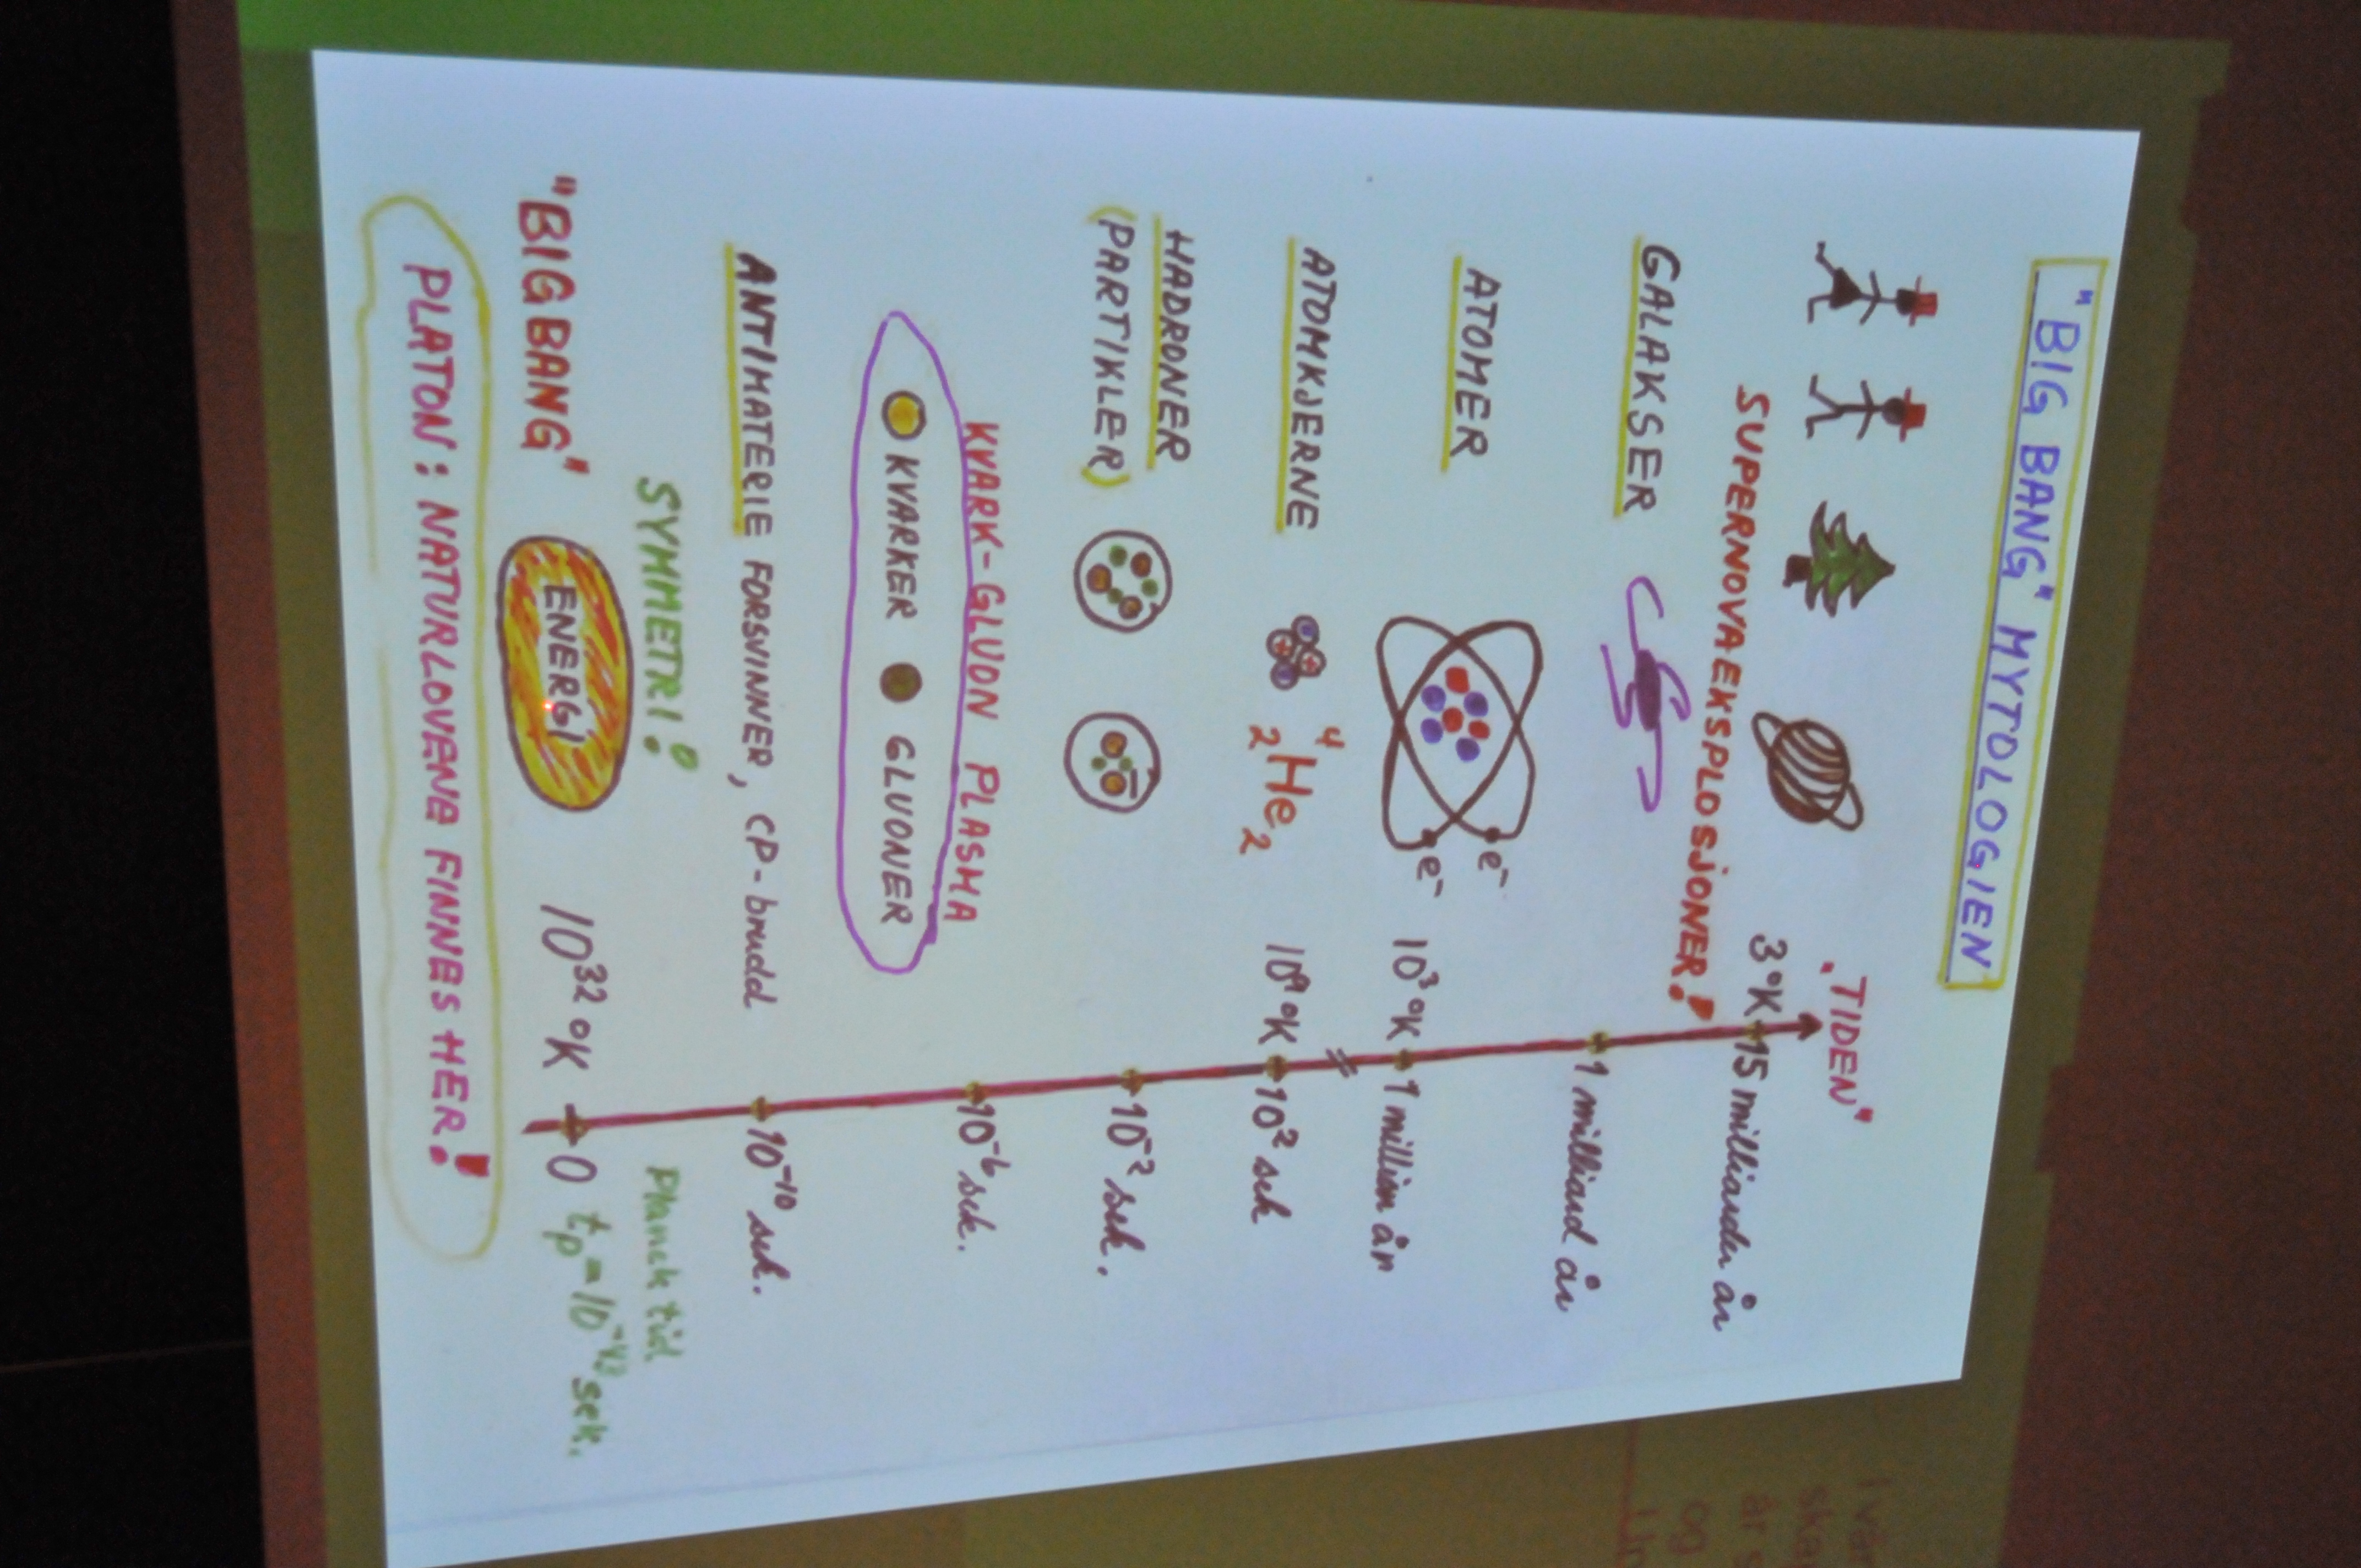 "BIG BANG" MYTOLOGIEN
"TIDEN"
3°K 15 milliarder år
SUPERNOVAEKSPLOSJONER!
GALAKSER 1 milliard år
ATOMER e⁻ e⁻ 10³ °K 1 million år
ATOMKJERNE ⁴₂He₂ 10⁹ °K 10² sek
HADRONER
(PARTIKLER) 10⁻² sek.
KVARK-GLUON PLASMA 10⁻⁶ sek.
KVARKER GLUONER
ANTIMATERIE FORSVINNER, CP-brudd 10⁻¹⁰ sek.
SYMMETRI! Planck tid
"BIG BANG" ENERGI 10³² °K 0 tₚ = 10⁻⁴³ sek.
PLATON: NATURLOVENE FINNES HER!
og